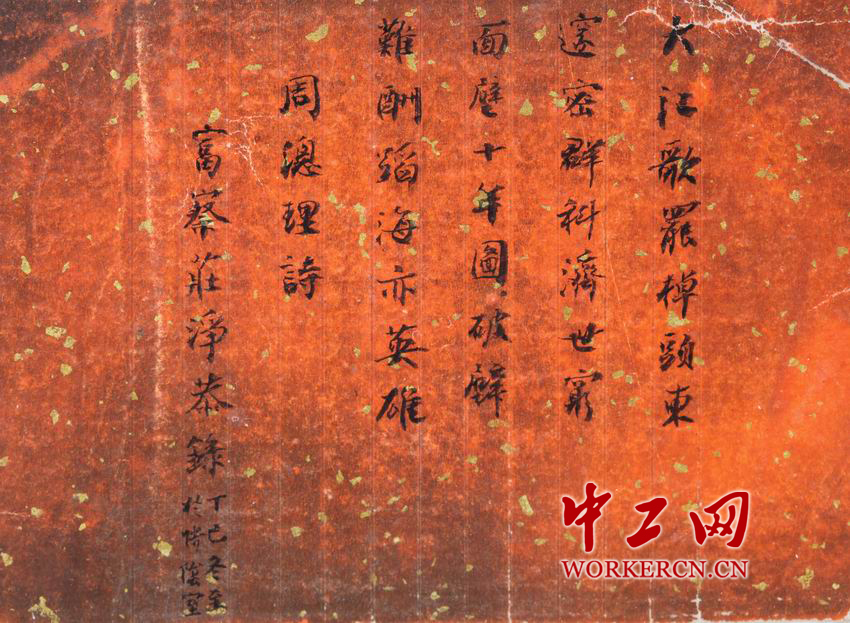 大江歌罷棹頭東
邃密群科濟世窮
面壁十年圖破壁
難酬蹈海亦英雄
周總理詩
富察莊淨恭錄
丁巳冬至
於惜陰室
中工网
WORKERCN.CN